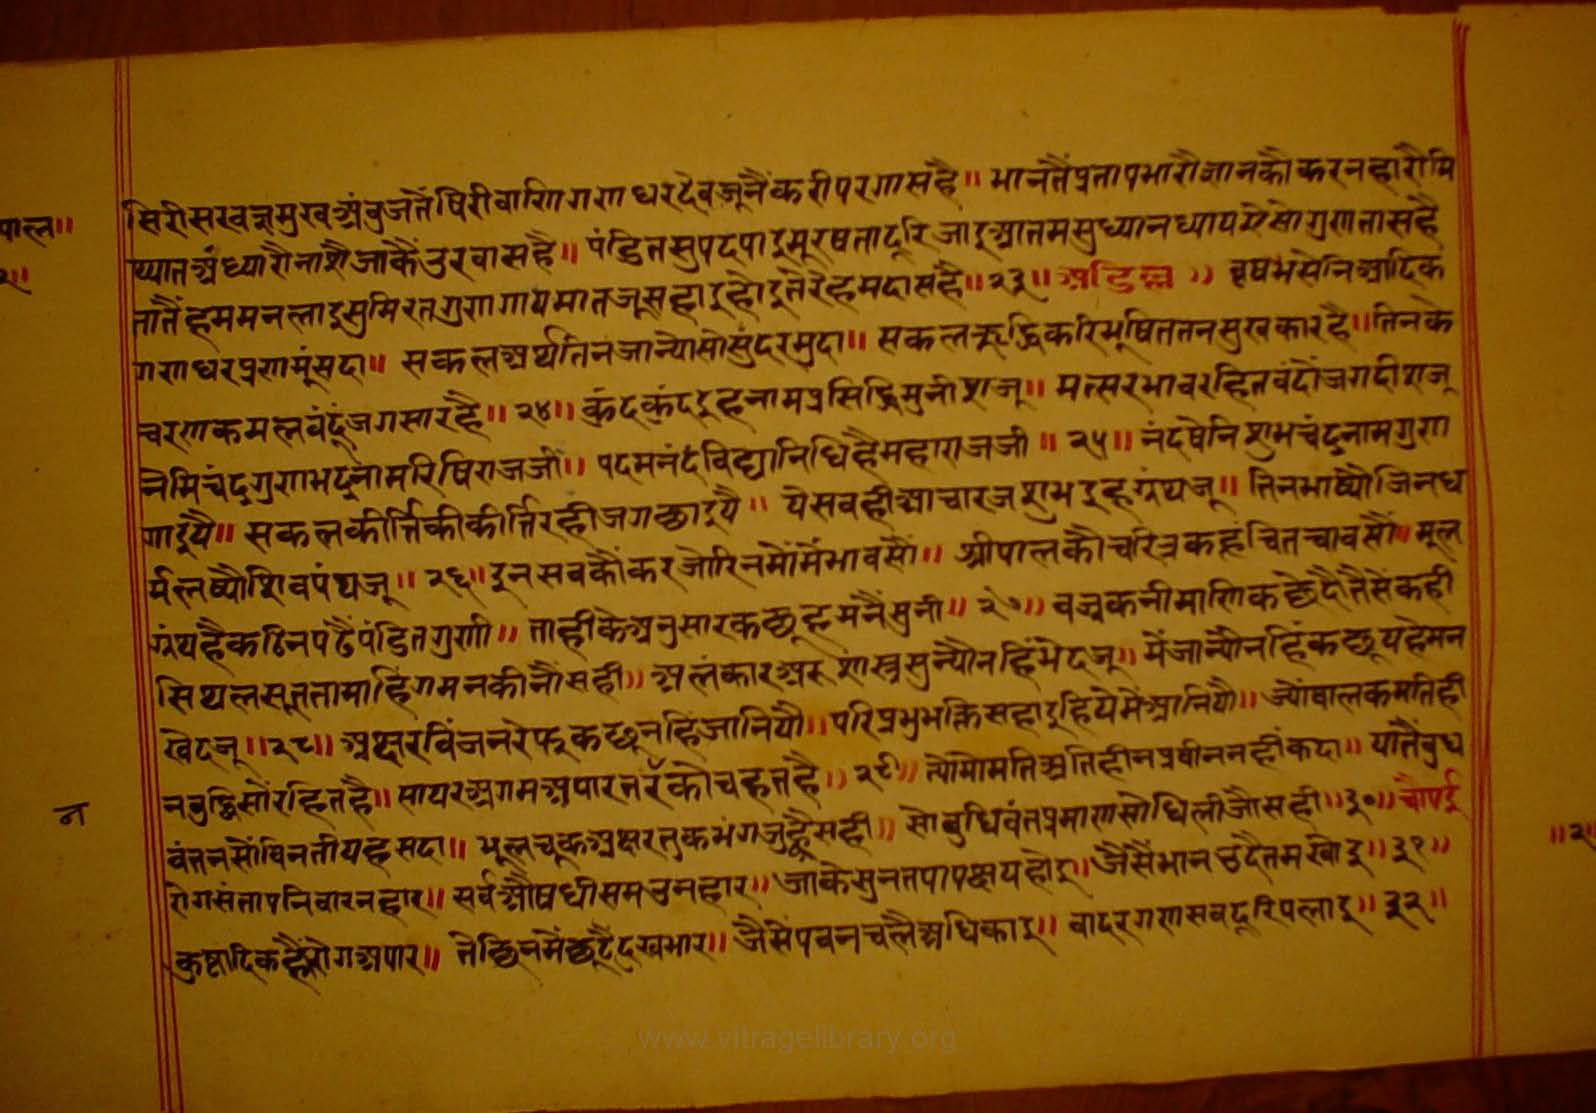 पाल॥
२॥
सिरीसरवज्ञमुखअंबुजतैंषिरीवाणिगणधरदेवजूनैंकरीपरगासहै॥ भानतैंप्रतापभारौज्ञानकौकरनहारौमि
थ्यातअंध्यारौनाशैजाकैंउरवासहै॥ पंडितसुपदपाइमूरषतादूरिजाइआतमसुध्यानध्यायऐसोगुणतासहै
तातैंहममनलाइसुमिरतगुणगायमातजूसहाइहोइतेरेहमदासहै॥२३॥ अडिल्ल॥ वृषभसेनिआदिक
गणधरप्रणमूंसदा॥ सकलअर्थतिनजान्योसोसुंदरमुदा॥ सकलऋद्धिकरिभूषिततनसुखकारहै॥तिनके
चरणकमलवंदूंजगसारहै॥२४॥ कुंदकुंदइहनामप्रसिद्धिमुनीशजू॥ मत्सरभावरहितवंदौंजगदीशजू
नेमिचंद्रगुणभद्रनामरिषिराजजी॥ पदमनंदविद्यानिधिहैमहाराजजी॥२५॥ नंदषेनिशुभचंद्रनामगुण
गाइयै॥ सकलकीर्त्तिकीकीर्त्तिरहीजगछाइयै॥ येसवहीआचारजशुभइहग्रंथजू॥ तिनभाष्यौजिनध
र्मलष्यौशिवपंथजू॥२६॥इनसवकौंकरजोरिनमोंमैंभावसौं॥ श्रीपालकौचरित्रकहूंचितचावसौं॥मूल
ग्रंथहैकठिनपढैंपंडितगुणी॥ ताहीकेअनुसारकछूहमनैंसुनी॥२७॥ वज्रकनीमाणिकछेदैतैसेंकही
सिथलसूततामाहिंगमनकीनौंसही॥ अलंकारअरुशास्त्रसुन्यौनहिंभेदजू॥ मैंजान्यौनहिंकछूयहेमन
खेदजू॥२८॥ अक्षरविंजनरेफकछूनहिजानियौ॥परिप्रभुभक्तिसहाइहियेमेंआनियौ॥ ज्योंबालकमतिही
नबुद्धिसौंरहितहै॥सायरअगमअपारतरैंकौचहतहै॥२९॥त्योंमोमतिअतिहीनप्रवीननहींकदा॥ यातैंबुध
न
वंतनसौंविनतीयहसदा॥ भूलचूकअक्षरतुकभंगजुह्वैसही॥ सोबुधिवंतप्रमाणसोधिलीजौसही॥३०॥चौपई
रोगसंतापनिवारनहार॥ सर्वऔषधीसमउनहार॥ जाकेसुनतपापक्षयहोइ॥जैसैंभानउदैतमखोइ॥३१॥
कुष्टादिकह्वैरोगअपार॥ तेछिनमेंछूटैंदुखभार॥ जैसेंपवनचलैअधिकाइ॥ वादरगणसवदूरिपलाइ॥३२॥
॥२
www.vitragelibrary.org